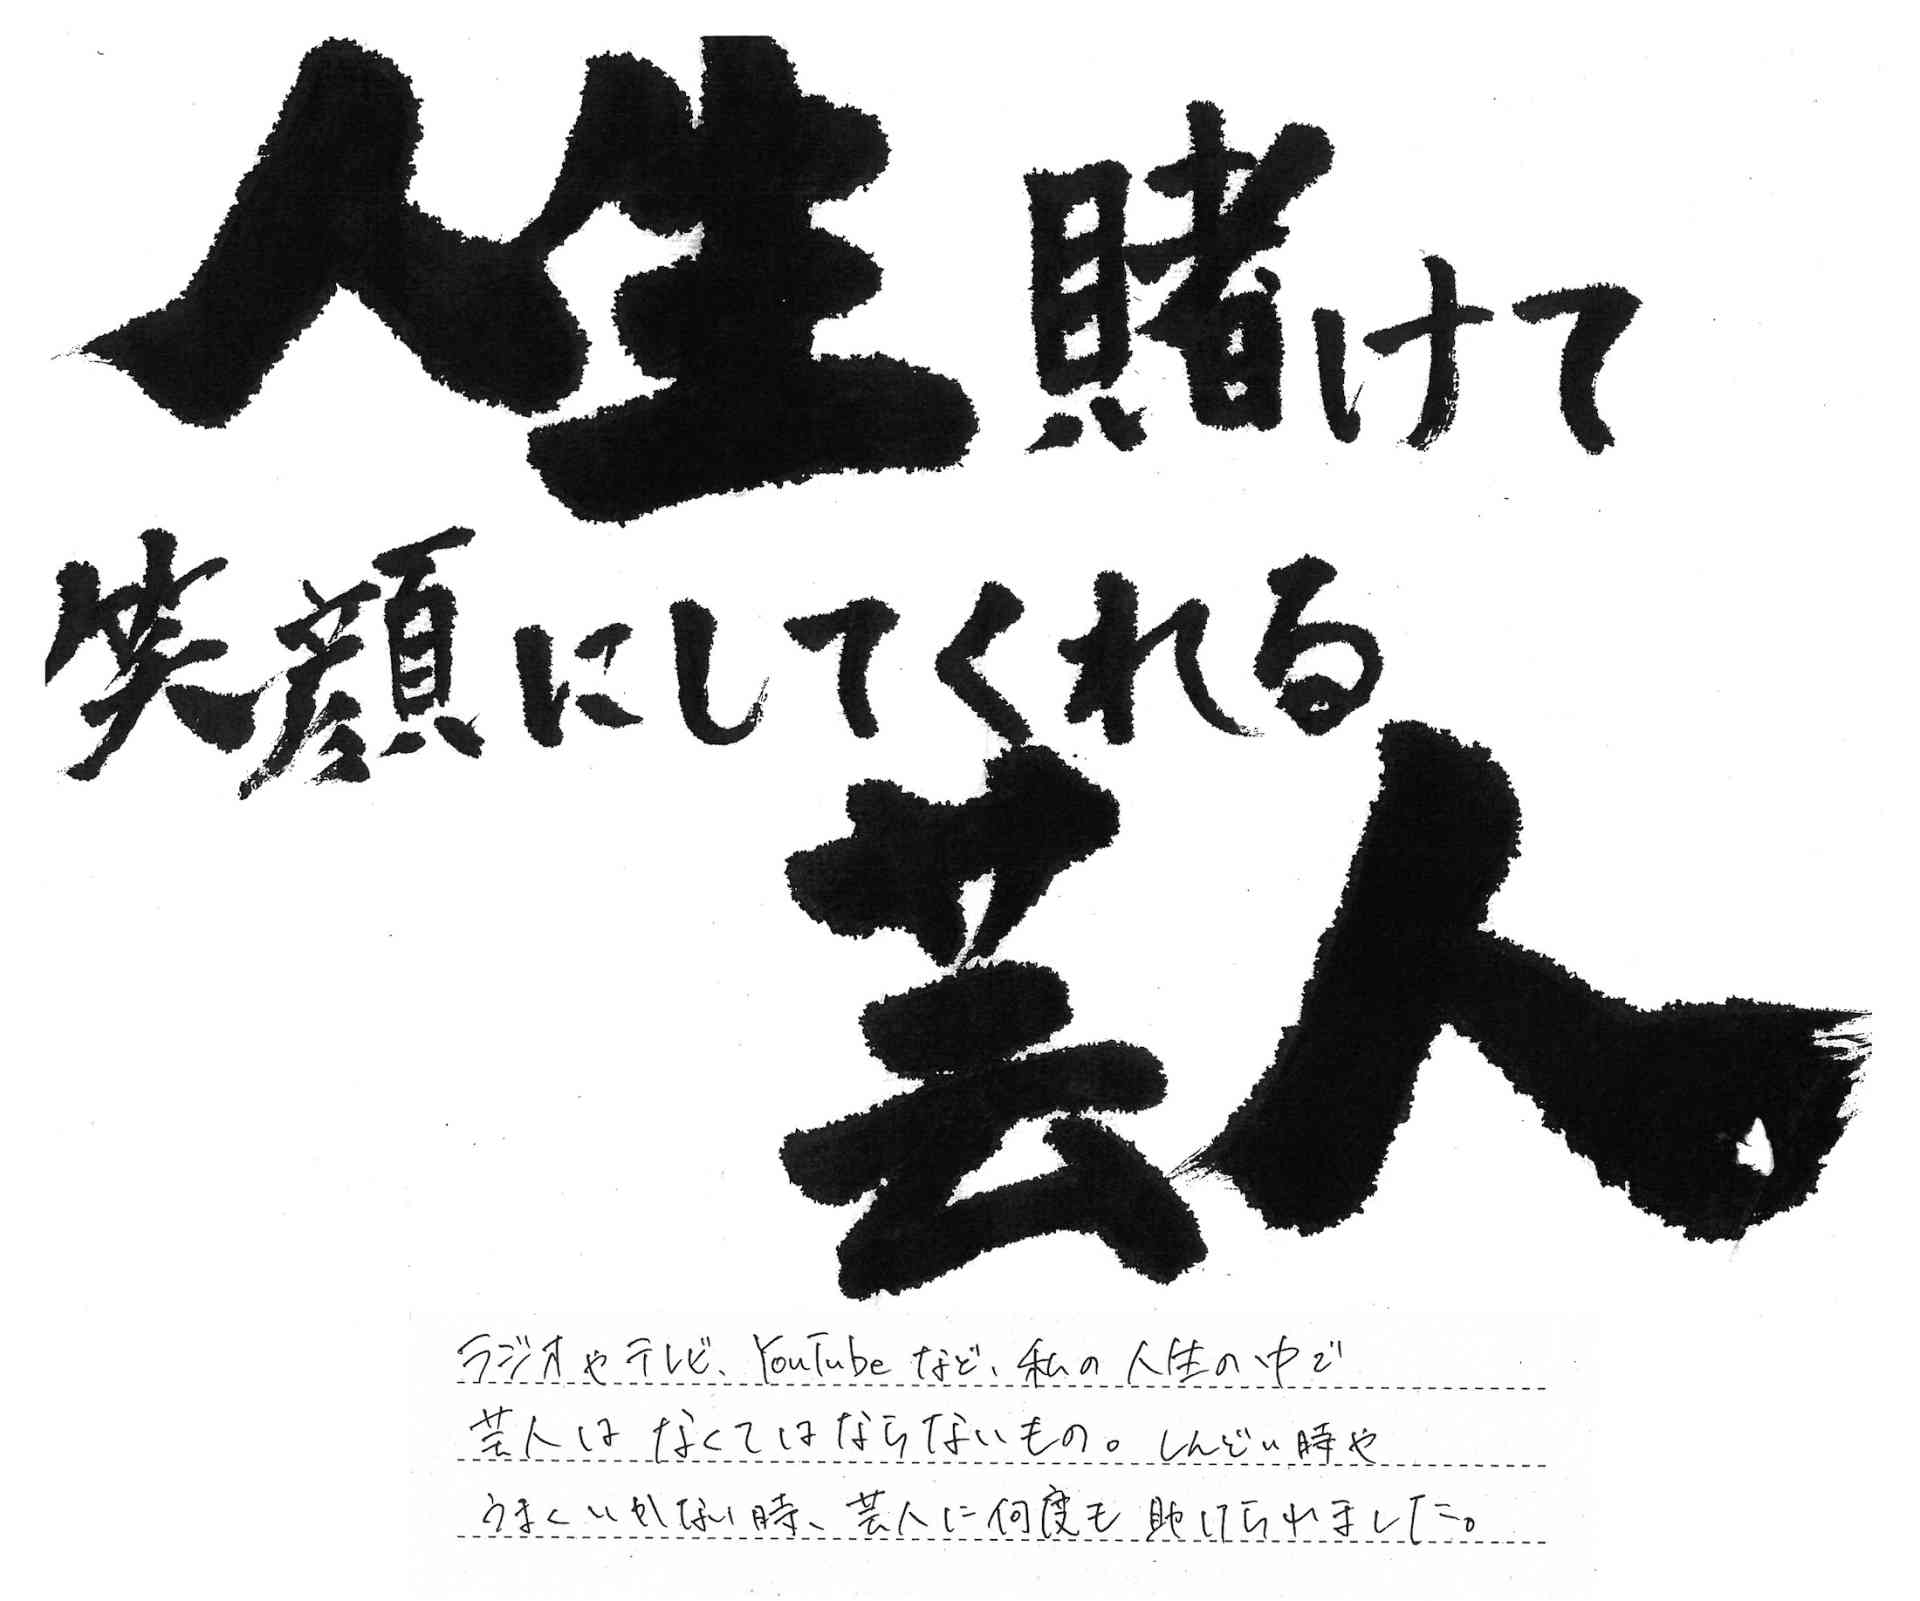 人生賭けて
笑顔にしてくれる
芸人
ラジオやテレビ、YouTubeなど、私の人生の中で
芸人はなくてはならないもの。しんどい時や
うまくいかない時、芸人に何度も助けられました。